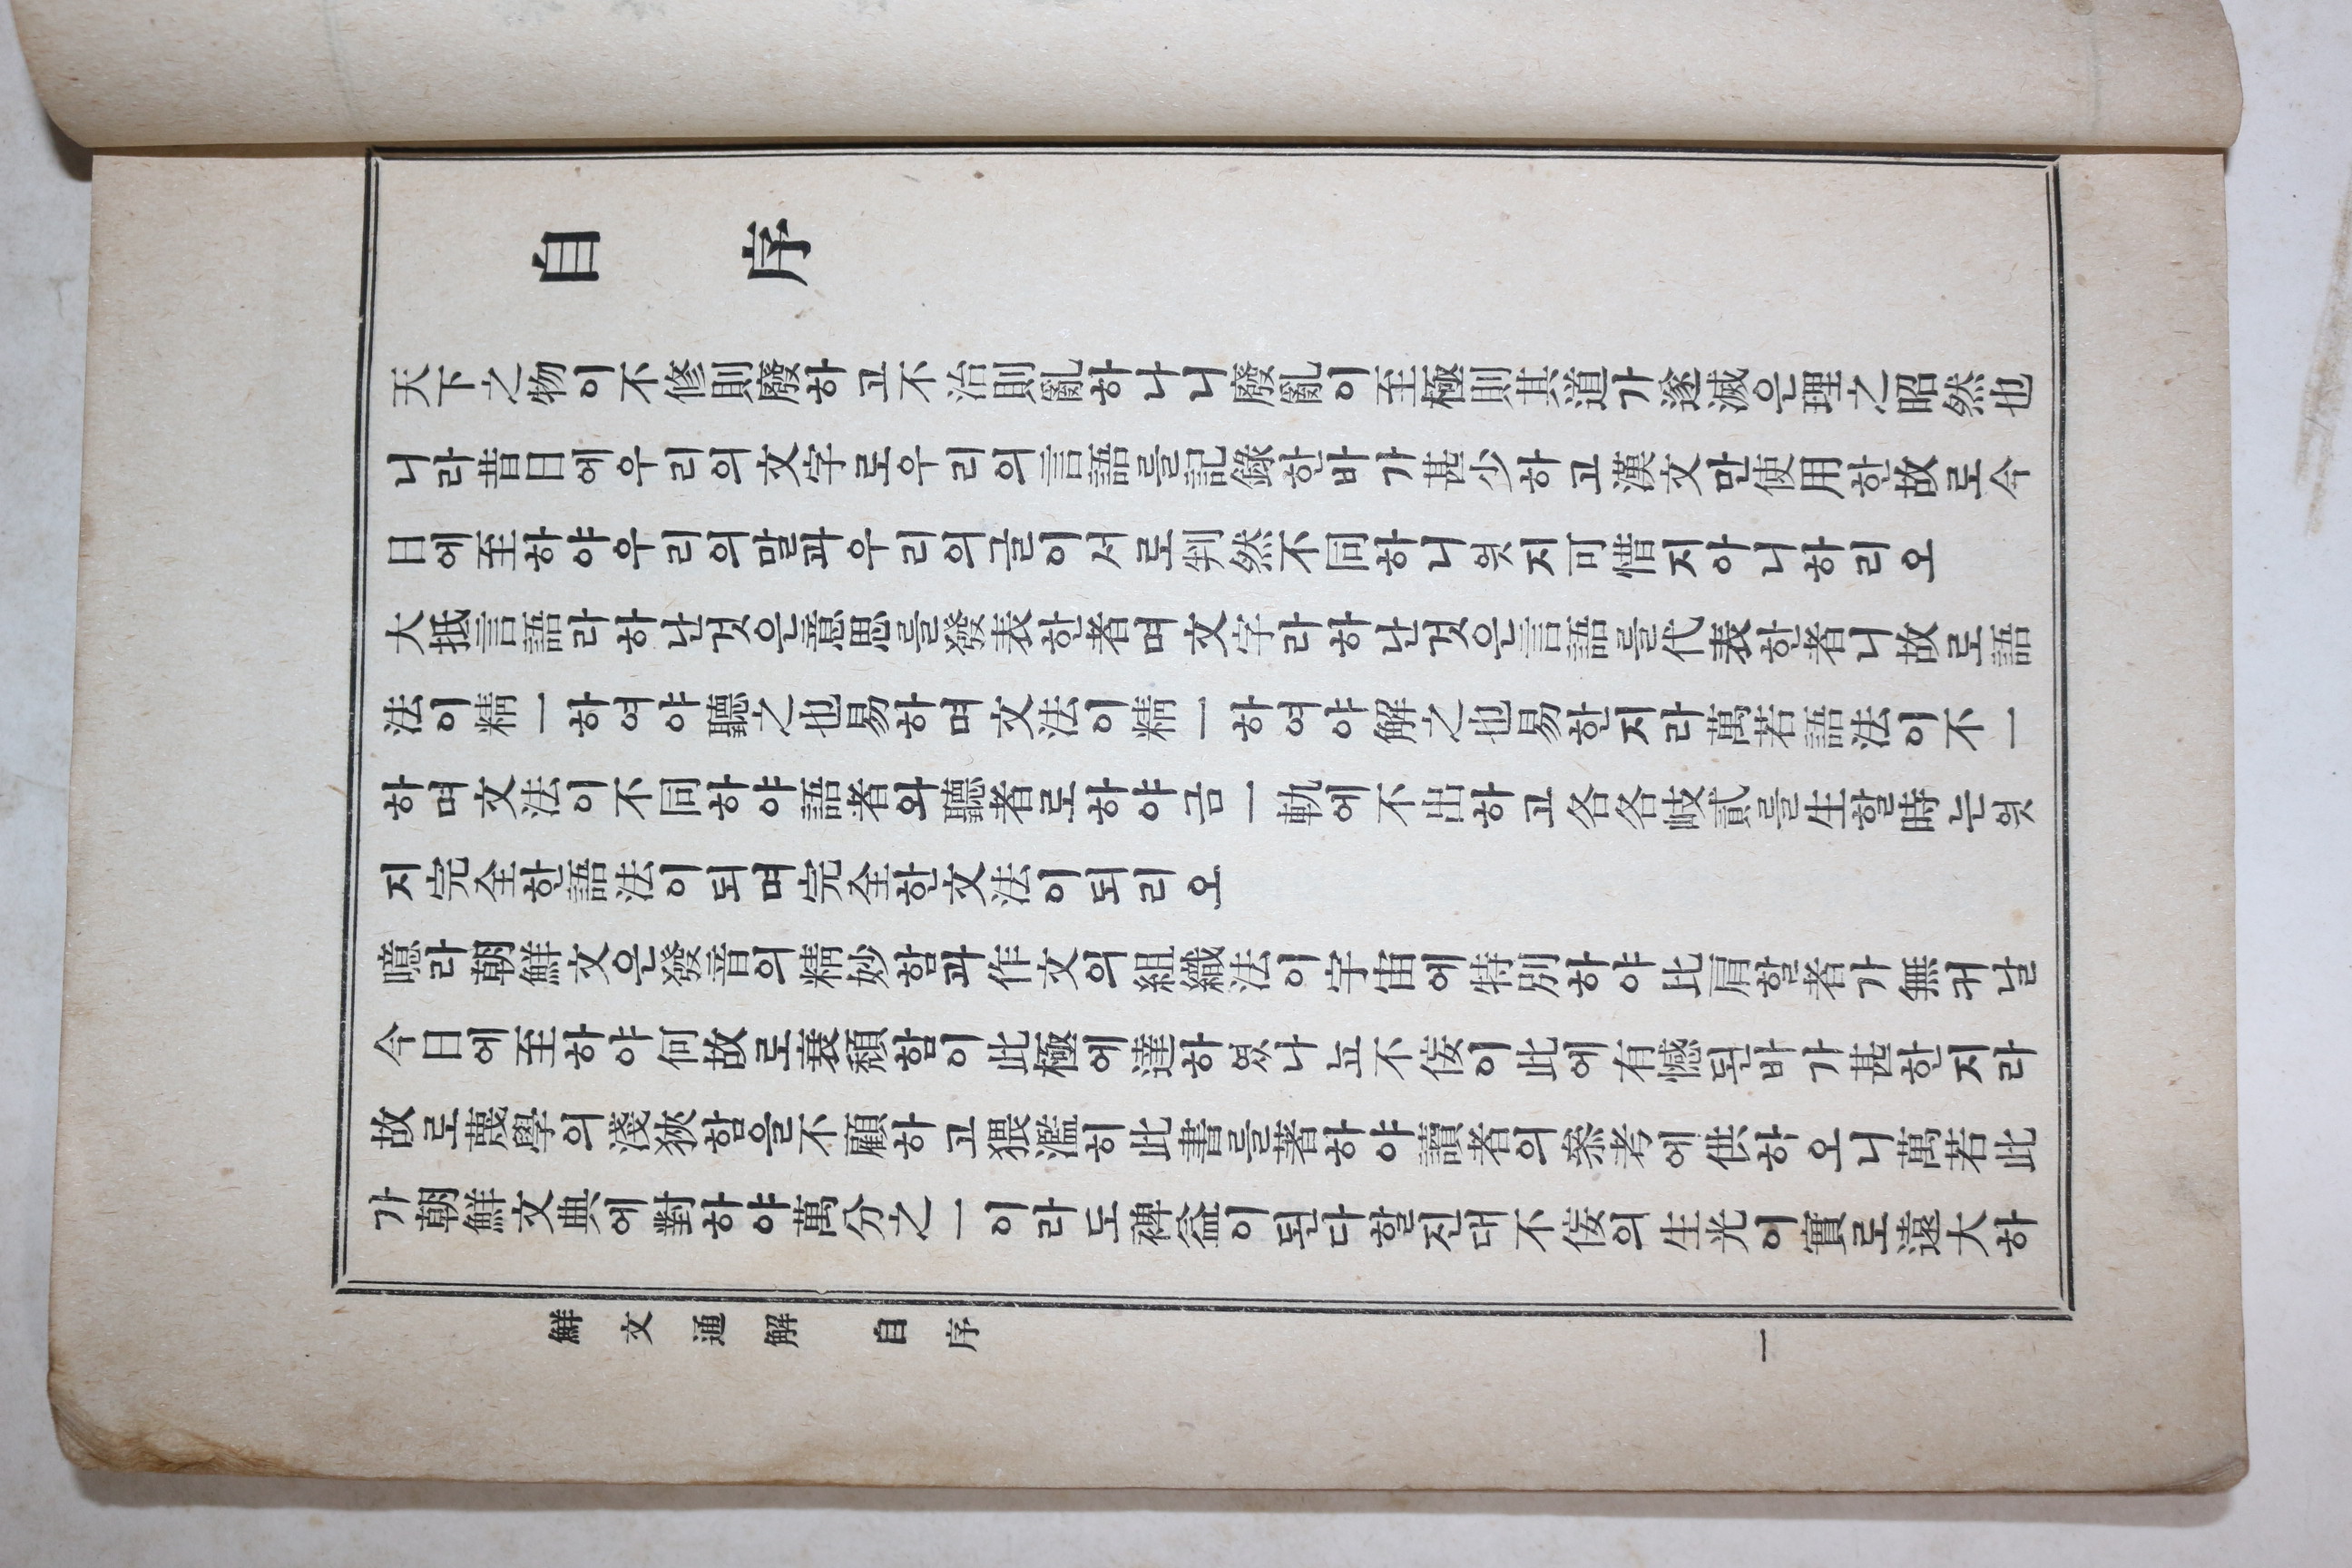 自序
天下之物이不修則廢하고不治則亂하나니廢亂이至極則其道가遂滅은理之昭然也
니라昔日에우리의文字로우리의言語를記錄한바가甚少하고漢文만使用한故로今
日에至하야우리의말과우리의글이서로判然不同하니엇지可惜지아니하리오
大抵言語라하난것은意思를發表한者며文字라하난것은言語를代表한者니故로語
法이精一하여야聽之也易하며文法이精一하여야解之也易한지라萬若語法이不一
하며文法이不同하야語者와聽者로하야금一軌에不出하고各各岐貳를生할時는엇
지完全한語法이되며完全한文法이되리오
噫라朝鮮文은發音의精妙함과作文의組織法이宇宙에特別하야比肩할者가無커날
今日에至하야何故로衰頹함이此極에達하엿나뇨不佞이此에有憾된바가甚한지라
故로蔑學의淺狹함을不顧하고猥濫히此書를著하야讀者의參考에供하오니萬若此
가朝鮮文典에對하야萬分之一이라도裨益이된다할진대不佞의生光이實로遠大하
鮮文通解 自序 一